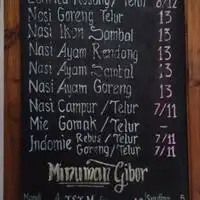 Kosong / Telur 8/12
Nasi Goreng Telur 13
Nasi Ikan Sambal 13
Nasi Ayam Rendang 13
Nasi Ayam Sambal 13
Nasi Ayam Goreng 13
Nasi Campur / Telur 7/11
Mie Gomak / Telur 7/11
Indomie Rebus / Telur 7/11
Goreng / Telur 7/11
Minuman Gibor